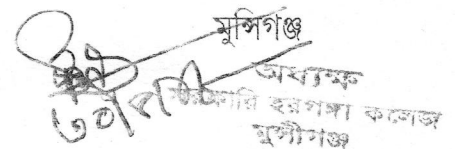 মুন্সিগঞ্জ
অধ্যক্ষ
সরকারি হরগঙ্গা কলেজ
মুন্সীগঞ্জ